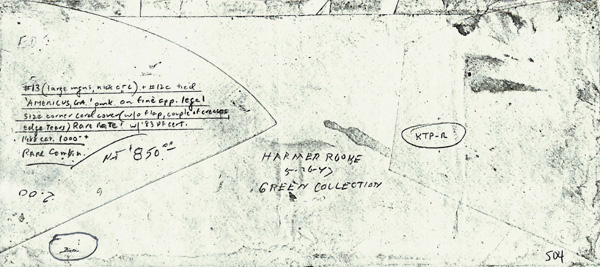 #13 (large mgns, nick CTL) + #12c tied
'AMERICUS, GA.' pmk on fine app. legal
size corner card cover (w/o flap, couple t. creases
edge tears) Rare Rate! w/ '83 PF cert.
1000⁰⁰ +
Rare Combin.
Net $850.⁰⁰
HARMER ROOKE
GREEN COLLECTION
KTP-R
504